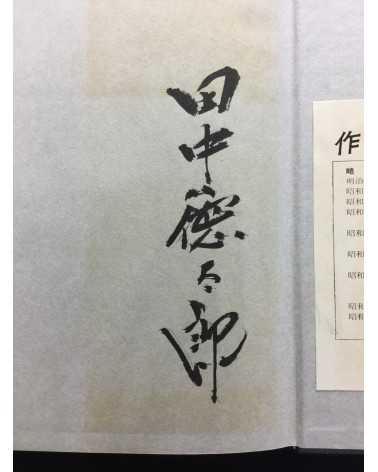 田中徳太郎
作
略
明治
昭和
昭和
昭和
昭和
昭和
昭和
昭和
昭和